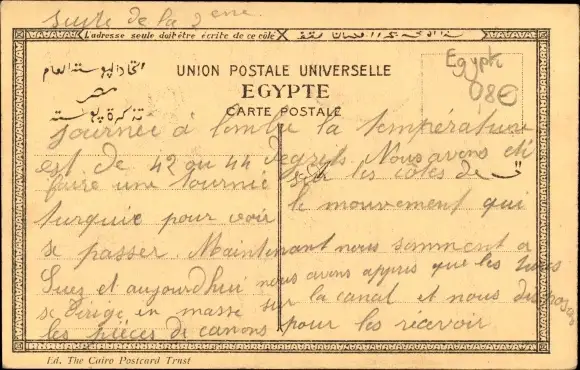 suite de la 2eme
L'adresse seule doit être écrite de ce côté
اتحاد البوستة العام
مصر
تذكرة بوستة
UNION POSTALE UNIVERSELLE
EGYPTE
CARTE POSTALE
Egypte
08€
journée à l'ombre la température
est de 42 ou 44 degrets Nous avons été
faire une tournée sur les côtes de
turquie pour voir le mouvement qui
se passer. Maintenant nous somment a
Sues et aujourdhui nous avons appris que les turcs
se dirige en masse sur la canal et nous disposons
les pieces de canons pour les recevoir
Ed. The Cairo Postcard Trust